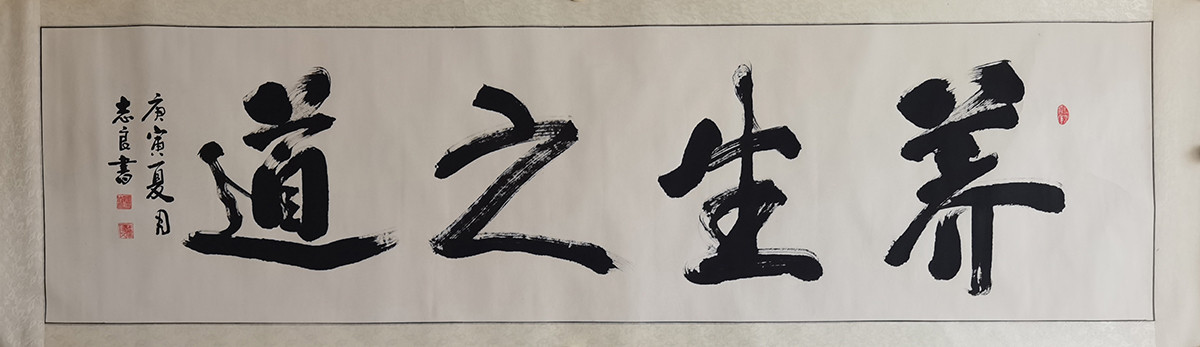 养生之道
庚寅夏月
志良書